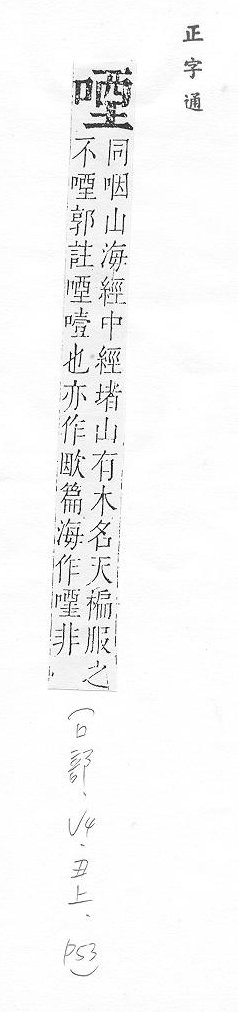 正字通
㖶
同咽山海經中經堵山有木名天楄服之
不㖶郭註㖶噎也亦作歐篇海作㖶非
(口部、V4、丑上、P53)